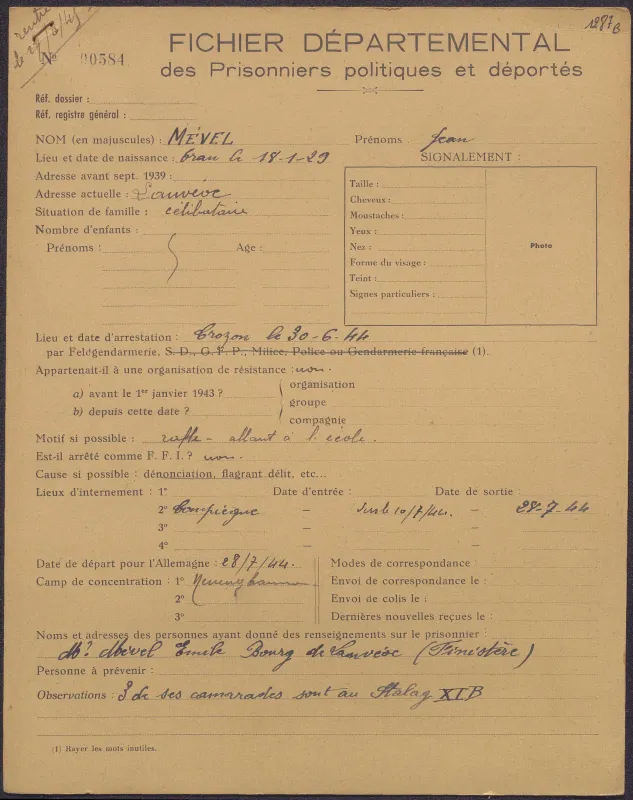 rentré
le 29/5/45
1287 B
Nº 00584
FICHIER DÉPARTEMENTAL
des Prisonniers politiques et déportés
Réf. dossier :
Réf. registre général :
NOM (en majuscules) : MÉVEL Prénoms : Jean
Lieu et date de naissance : Cran le 18-1-29
SIGNALEMENT :
Adresse avant sept. 1939 :
Adresse actuelle : Lanvéoc
Situation de famille : célibataire
Nombre d'enfants :
Prénoms : Age :
Taille :
Cheveux :
Moustaches :
Yeux :
Nez :
Forme du visage :
Teint :
Signes particuliers :
Photo
Lieu et date d'arrestation : Crozon le 30-6-44
par Felégendarmerie, S. D., G. F. P., Milice, Police ou Gendarmerie française (1).
Appartenait-il à une organisation de résistance : non.
a) avant le 1er janvier 1943 ?
b) depuis cette date ?
organisation
groupe
compagnie
Motif si possible : rafle - allant à l'école.
Est-il arrêté comme F. F. I. ? non.
Cause si possible : dénonciation, flagrant délit, etc...
Lieux d'internement : 1º Date d'entrée : Date de sortie :
2º Compiègne — 10/7/44. — 28-7-44
3º — —
4º — —
Date de départ pour l'Allemagne : 28/7/44.
Camp de concentration : 1º
2º
3º
Modes de correspondance :
Envoi de correspondance le :
Envoi de colis le :
Dernières nouvelles reçues le :
Noms et adresses des personnes ayant donné des renseignements sur le prisonnier :
Mr Mével Emile Bourg de Lanvéoc (Finistère)
Personne à prévenir :
Observations : 3 de ses camarades sont au Stalag XI B
(1) Rayer les mots inutiles.